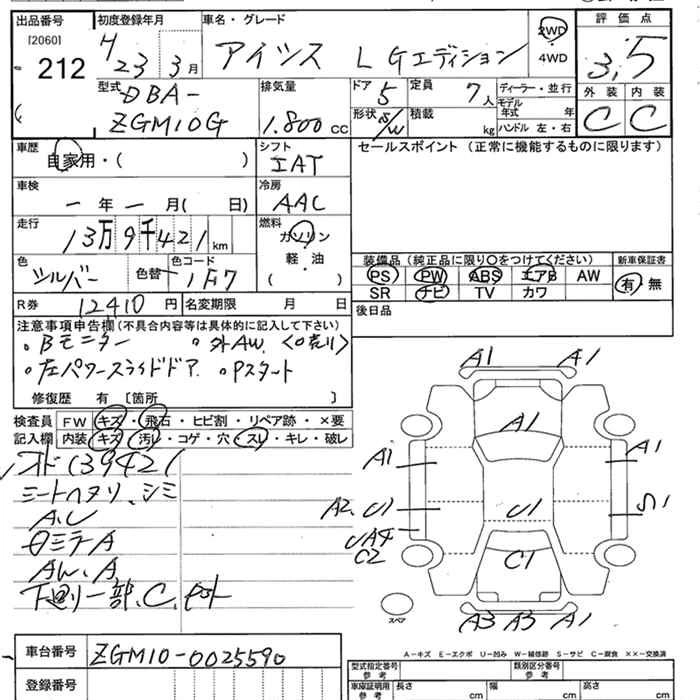 出品番号 初度登録年月 車名・グレード 2WD 評価点
[2060] 212 H23 3月 アイシス L Gエディション 4WD 3.5
型式 排気量 ドア 定員 ディーラー・並行 外装 内装
DBA- ZGM10G 1.800cc 5 7人 モデル年式 年 C C
形状 S/W 積載 kg ハンドル 左・右
車歴 自家用・( ) シフト IAT セールスポイント (正常に機能するものに限ります)
車検 ー年ー月( 日) 冷房 AAC
走行 13万9千421km 燃料 ガソリン
軽・油
( )
色 シルバー 色替 色コード 1F7
装備品 (純正品に限り○をつけてください) 新車保証書
PS PW ABS エアB AW 有・無
SR ナビ TV カワ
R券 12410円 名変期限 月 日 後日品
注意事項申告欄(不具合内容等は具体的に記入して下さい)
。Bモニター 。外AW.
。左パワースライドドア 。Pスタート
修復歴 有 〔箇所 〕
検査員 FW キズ・飛石・ヒビ割・リペア跡・×要
記入欄 内装 キズ・汚レ・コゲ・穴・スレ・キレ・破レ
オド139421
シートヘタリ、シミ
A.U
AW.A
下廻り一部.C.
A1 A1
A1
A1 A1
A2. U1 U1 S1
UA4
C2 C1
スペア A3 A3 A1
A−キズ E−エクボ U−凹み W−補修跡 S−サビ C−腐食 ××−交換済
車台番号 ZGM10-0025590 型式指定番号 参考 類別区分番号 参考
登録番号 車庫証明用 参考 長さ cm 幅 cm 高さ cm